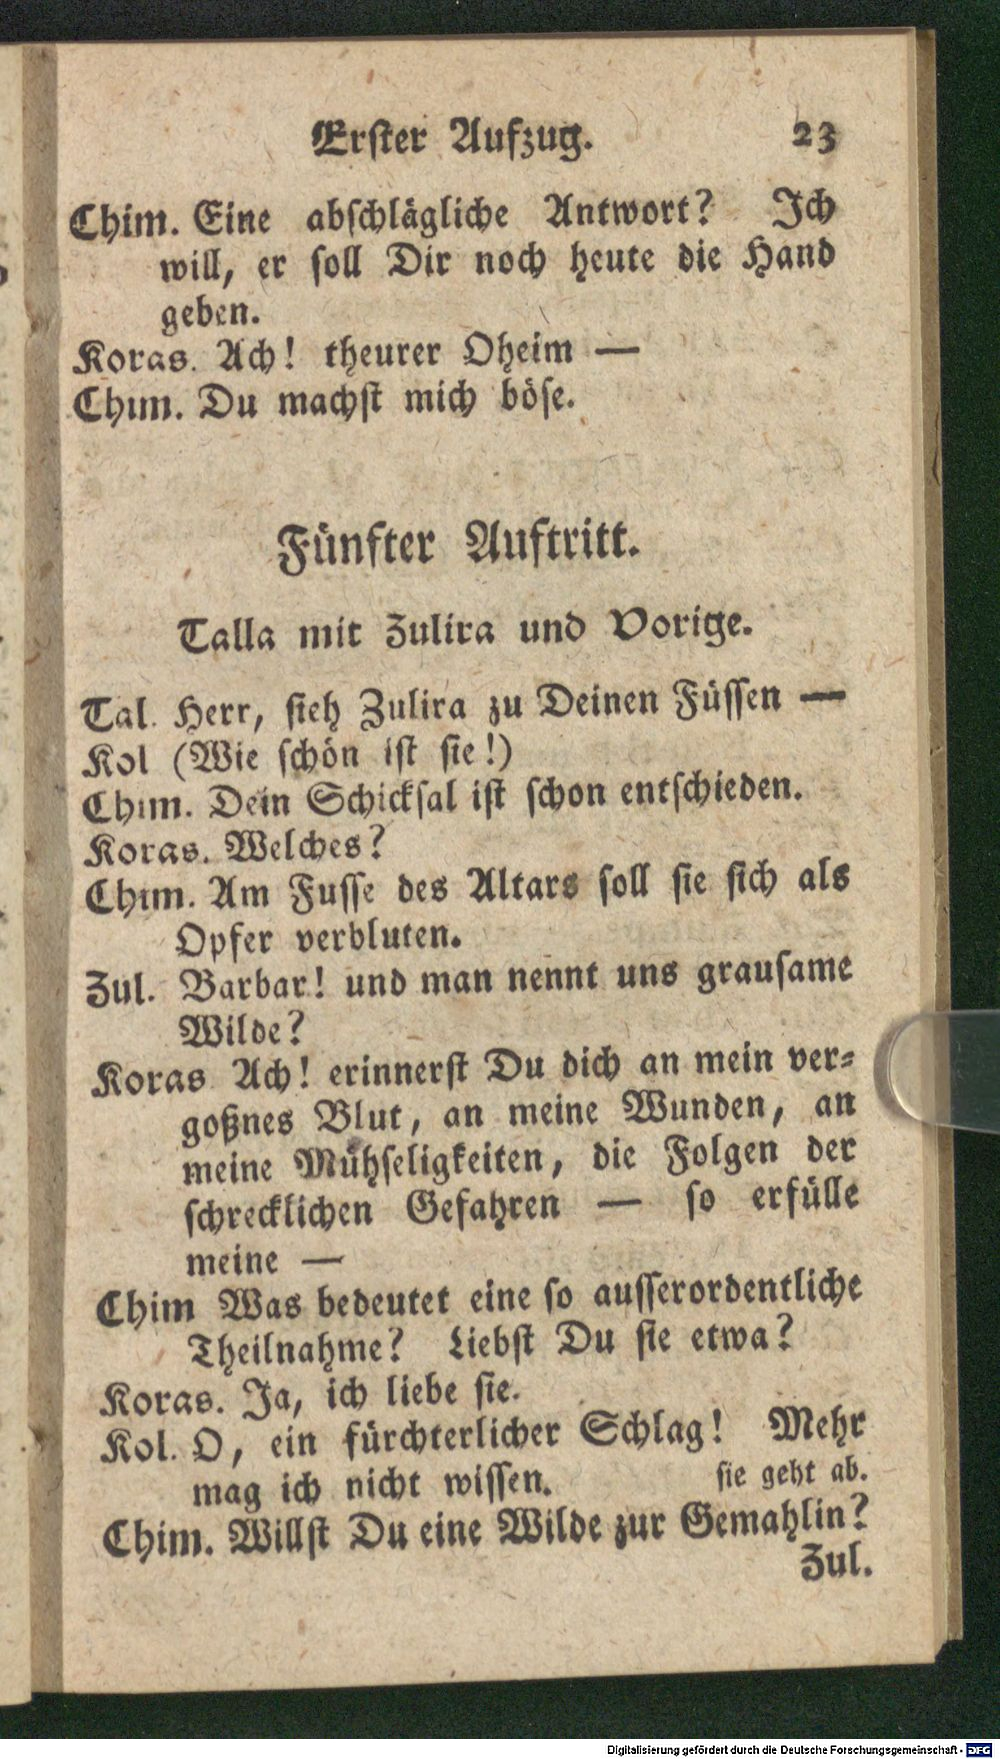 Erster Aufzug. 23
Chim. Eine abschlägliche Antwort? Ich
will, er soll Dir noch heute die Hand
geben.
Koras. Ach! theurer Oheim —
Chim. Du machst mich böse.
Fünfter Auftritt.
Talla mit Zulira und Vorige.
Tal. Herr, sieh Zulira zu Deinen Füssen —
Kol (Wie schön ist sie!)
Chim. Dein Schicksal ist schon entschieden.
Koras. Welches?
Chim. Am Fusse des Altars soll sie sich als
Opfer verbluten.
Zul. Barbar! und man nennt uns grausame
Wilde?
Koras Ach! erinnerst Du dich an mein ver-
goßnes Blut, an meine Wunden, an
meine Mühseligkeiten, die Folgen der
schrecklichen Gefahren — so erfülle
meine —
Chim Was bedeutet eine so ausserordentliche
Theilnahme? Liebst Du sie etwa?
Koras. Ja, ich liebe sie.
Kol. O, ein fürchterlicher Schlag! Mehr
mag ich nicht wissen. sie geht ab.
Chim. Willst Du eine Wilde zur Gemahlin?
Zul.
Digitalisierung gefördert durch die Deutsche Forschungsgemeinschaft - DFG